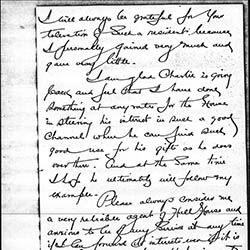 I will always be grateful for your
toleration of such a resident, because
I personally gained very much and
gave very little.
I am glad Charlie is going
and feel that I have done
something at any rate for the House
in steering his interest in such a good
channel when he can find such
good use for his gifts as he does
over there. And at the same time
I hope he ultimately will follow my
example.
Please always consider me
a very reliable agent of Hull House and
anxious to be of any service at any time
if I can forward its interests even if it is